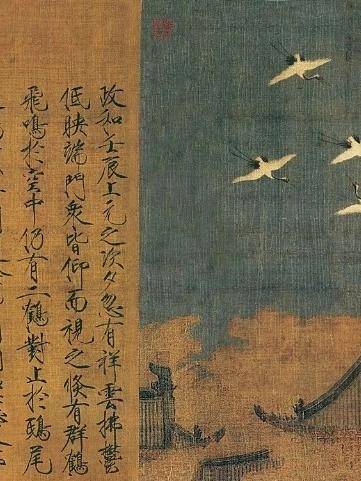 政和壬辰上元之次夕忽有祥雲拂鬱
低映端門衆皆仰而視之倏有群鶴
飛鳴於空中仍有二鶴對止於鴟尾